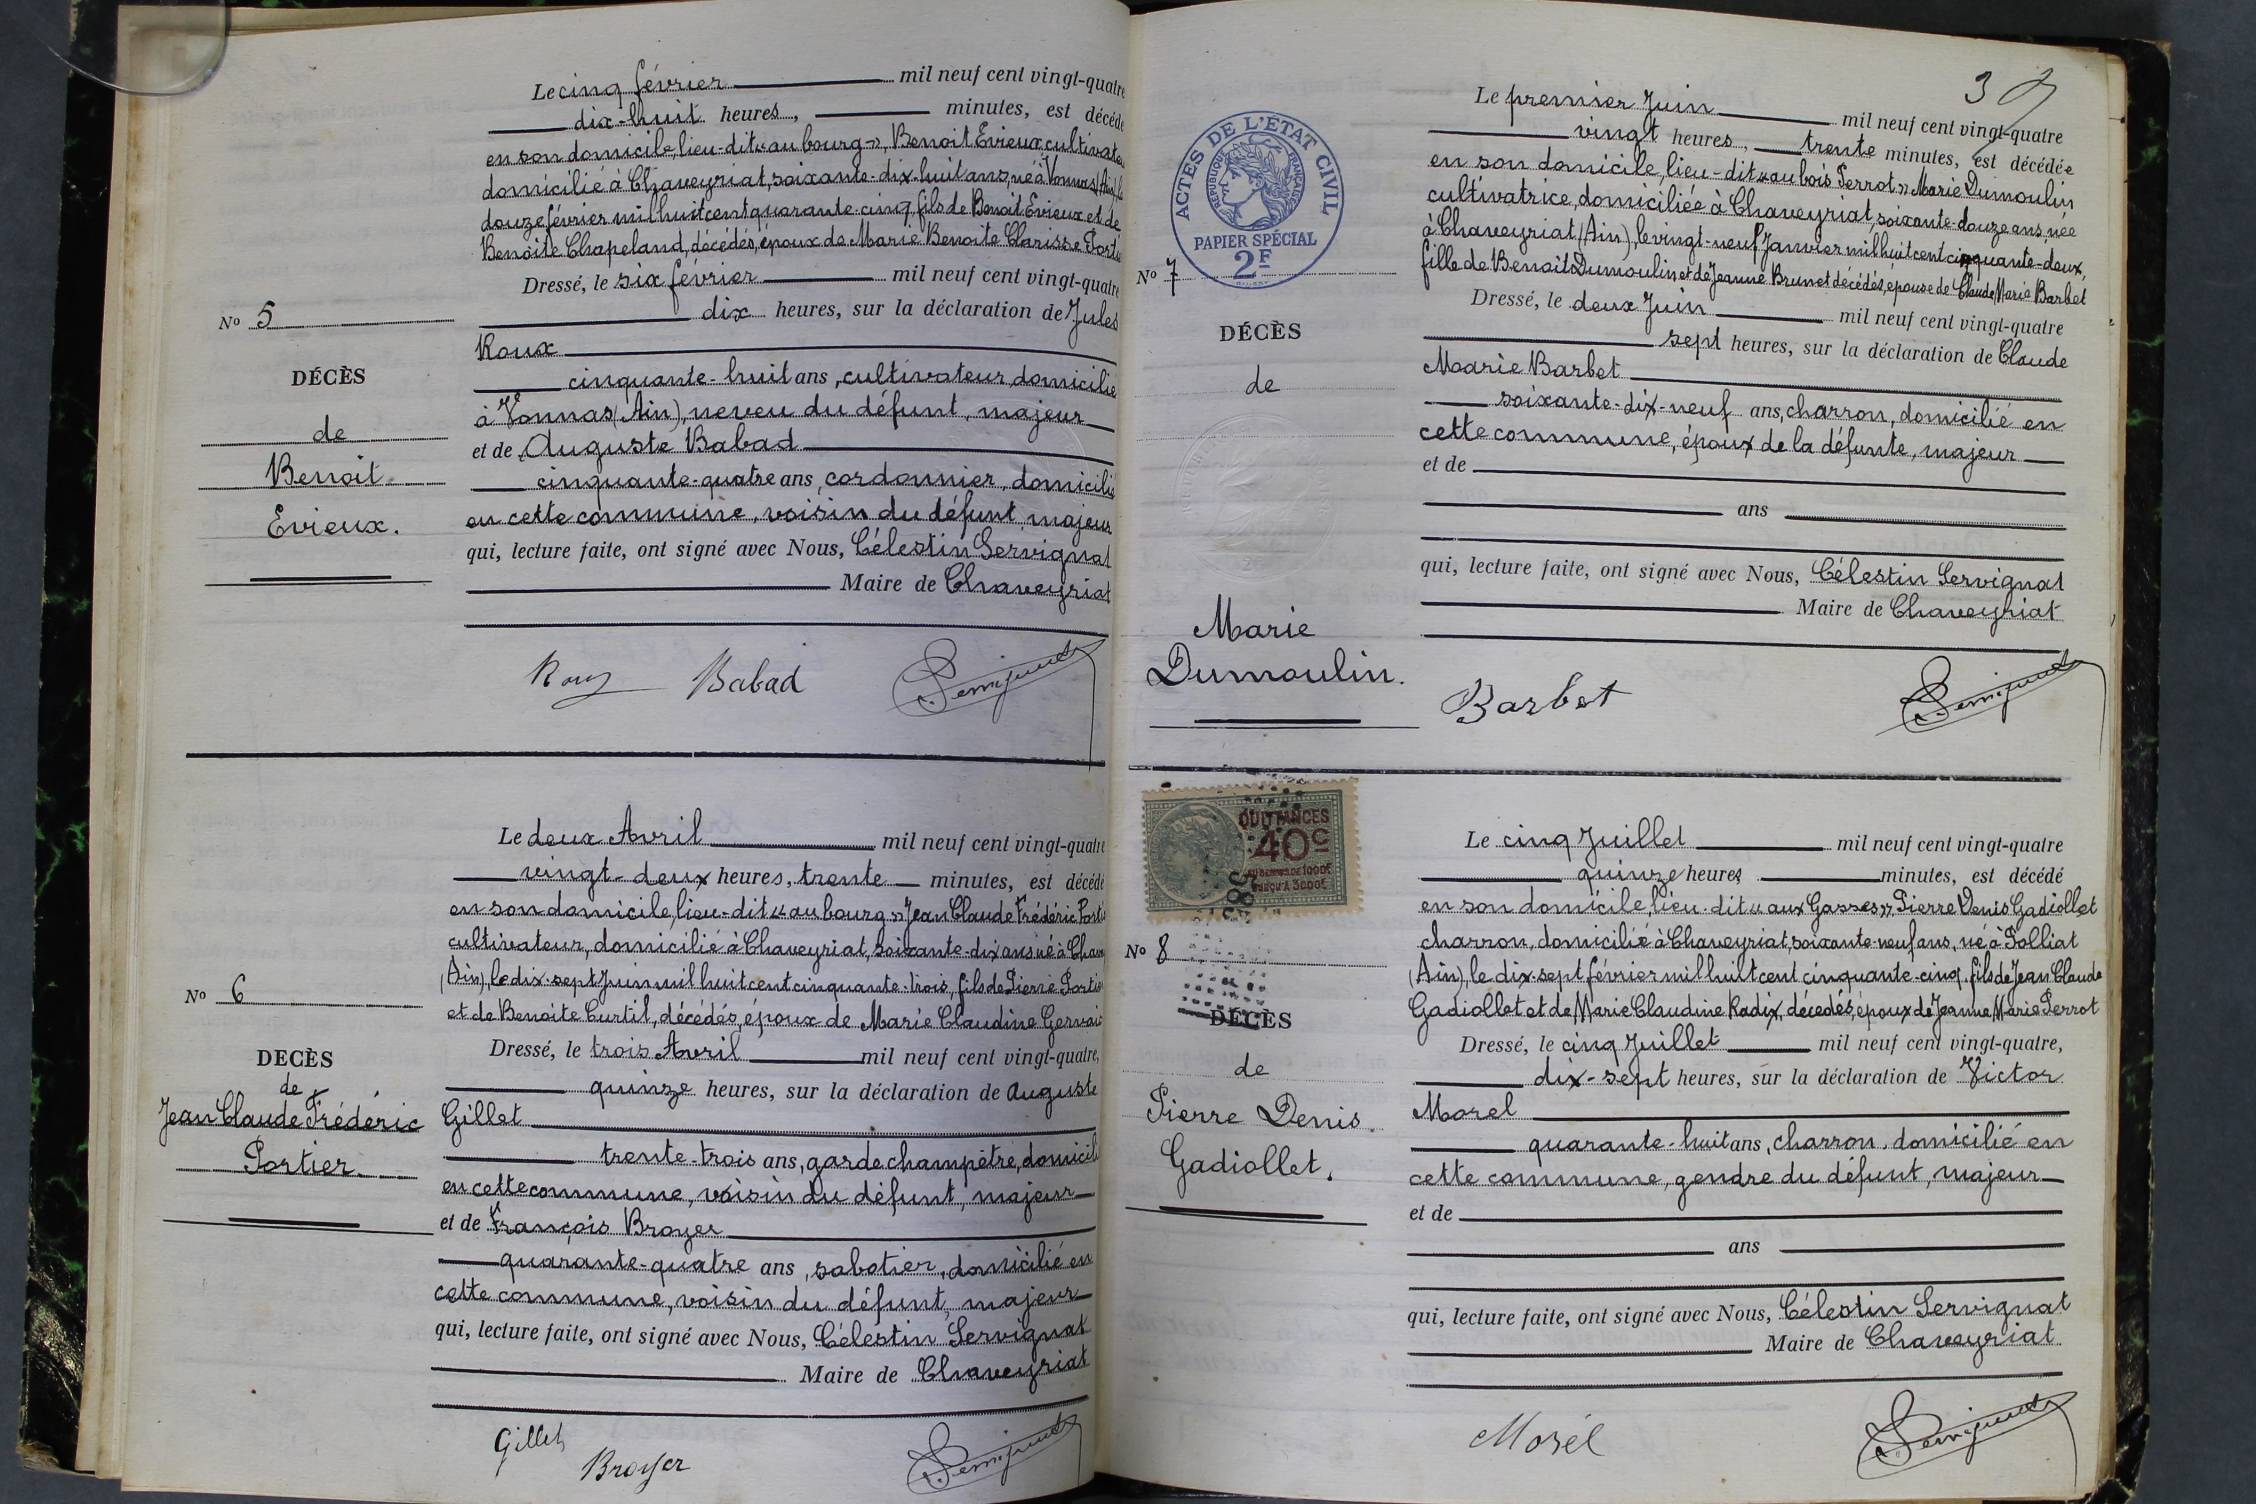 Le cinq février mil neuf cent vingt-quatre
dix-huit heures, minutes, est décédé
en son domicile, lieu-dit « au bourg », Benoit Evieux, cultivate
domicilié à Chaveyriat, soixante-dix-huit ans, né à Vonnas (Ain) le
douze février mil huit cent quarante-cinq, fils de Benoit Evieux et de
Benoite Chapeland, décédés, époux de Marie Benoite Clarisse Porti
Dressé, le six février mil neuf cent vingt-quatre
dix heures, sur la déclaration de Jules
Roux
cinquante-huit ans, cultivateur, domicilié
à Vonnas (Ain), neveu du défunt, majeur
et de Auguste Babad
cinquante-quatre ans, cordonnier, domicilié
en cette commune, voisin du défunt, majeur
qui, lecture faite, ont signé avec Nous, Célestin Servignat
Maire de Chaveyriat
No 5
DÉCÈS
de
Benoit
Evieux.
Roux Babad
Le deux Avril mil neuf cent vingt-quatre
vingt-deux heures, trente minutes, est décédé
en son domicile, lieu-dit « au bourg » Jean Claude Frédéric Porti
cultivateur, domicilié à Chaveyriat, soixante-dix ans né à Chave
(Ain), le dix-sept Juin mil huit cent cinquante-trois, fils de Pierre Portie
et de Benoite Curtil, décédés, époux de Marie Claudine Gervais
Dressé, le trois Avril mil neuf cent vingt-quatre,
quinze heures, sur la déclaration de Auguste
Gillet
trente-trois ans, garde champêtre, domicili
en cette commune, voisin du défunt, majeur
et de François Broyer
quarante-quatre ans, sabotier, domicilié en
cette commune, voisin du défunt, majeur
qui, lecture faite, ont signé avec Nous, Célestin Servignat
Maire de Chaveyriat
No 6
DECÈS
de
Jean Claude Frédéric
Portier
Gillet
Broyer
3
Le premier Juin mil neuf cent vingt-quatre
vingt heures, trente minutes, est décédée
en son domicile, lieu-dit « au bois Perrot » Marie Dumoulin
cultivatrice, domiciliée à Chaveyriat, soixante-douze ans, née
à Chaveyriat (Ain), le vingt-neuf Janvier mil huit cent cinquante-deux,
fille de Benoit Dumoulin et de Jeanne Brunet décédés, épouse de Claude Marie Barbet
Dressé, le deux Juin mil neuf cent vingt-quatre
sept heures, sur la déclaration de Claude
Marie Barbet
soixante-dix-neuf ans, charron, domicilié en
cette commune, époux de la défunte, majeur
et de
ans
qui, lecture faite, ont signé avec Nous, Célestin Servignat
Maire de Chaveyriat
ACTES DE L'ÉTAT CIVIL
REPUBLIQUE FRANÇAISE
PAPIER SPÉCIAL
2F
No 7
DÉCÈS
de
Marie
Dumoulin.
Barbet
QUITTANCES
40c
AU DESSUS DE 1000F
JUSQU'A 3000F
Le cinq Juillet mil neuf cent vingt-quatre
quinze heures minutes, est décédé
en son domicile, lieu-dit « aux Gasses », Pierre Denis Gadiollet
charron, domicilié à Chaveyriat, soixante-neuf ans, né à Polliat
(Ain), le dix-sept février mil huit cent cinquante-cinq, fils de Jean Claude
Gadiollet et de Marie Claudine Radix, décédés, époux de Jeanne Marie Perrot
Dressé, le cinq Juillet mil neuf cent vingt-quatre,
dix-sept heures, sur la déclaration de Victor
Morel
quarante-huit ans, charron, domicilié en
cette commune, gendre du défunt, majeur
et de
ans
qui, lecture faite, ont signé avec Nous, Célestin Servignat
Maire de Chaveyriat
No 8
DÉCÈS
de
Pierre Denis
Gadiollet.
Morel